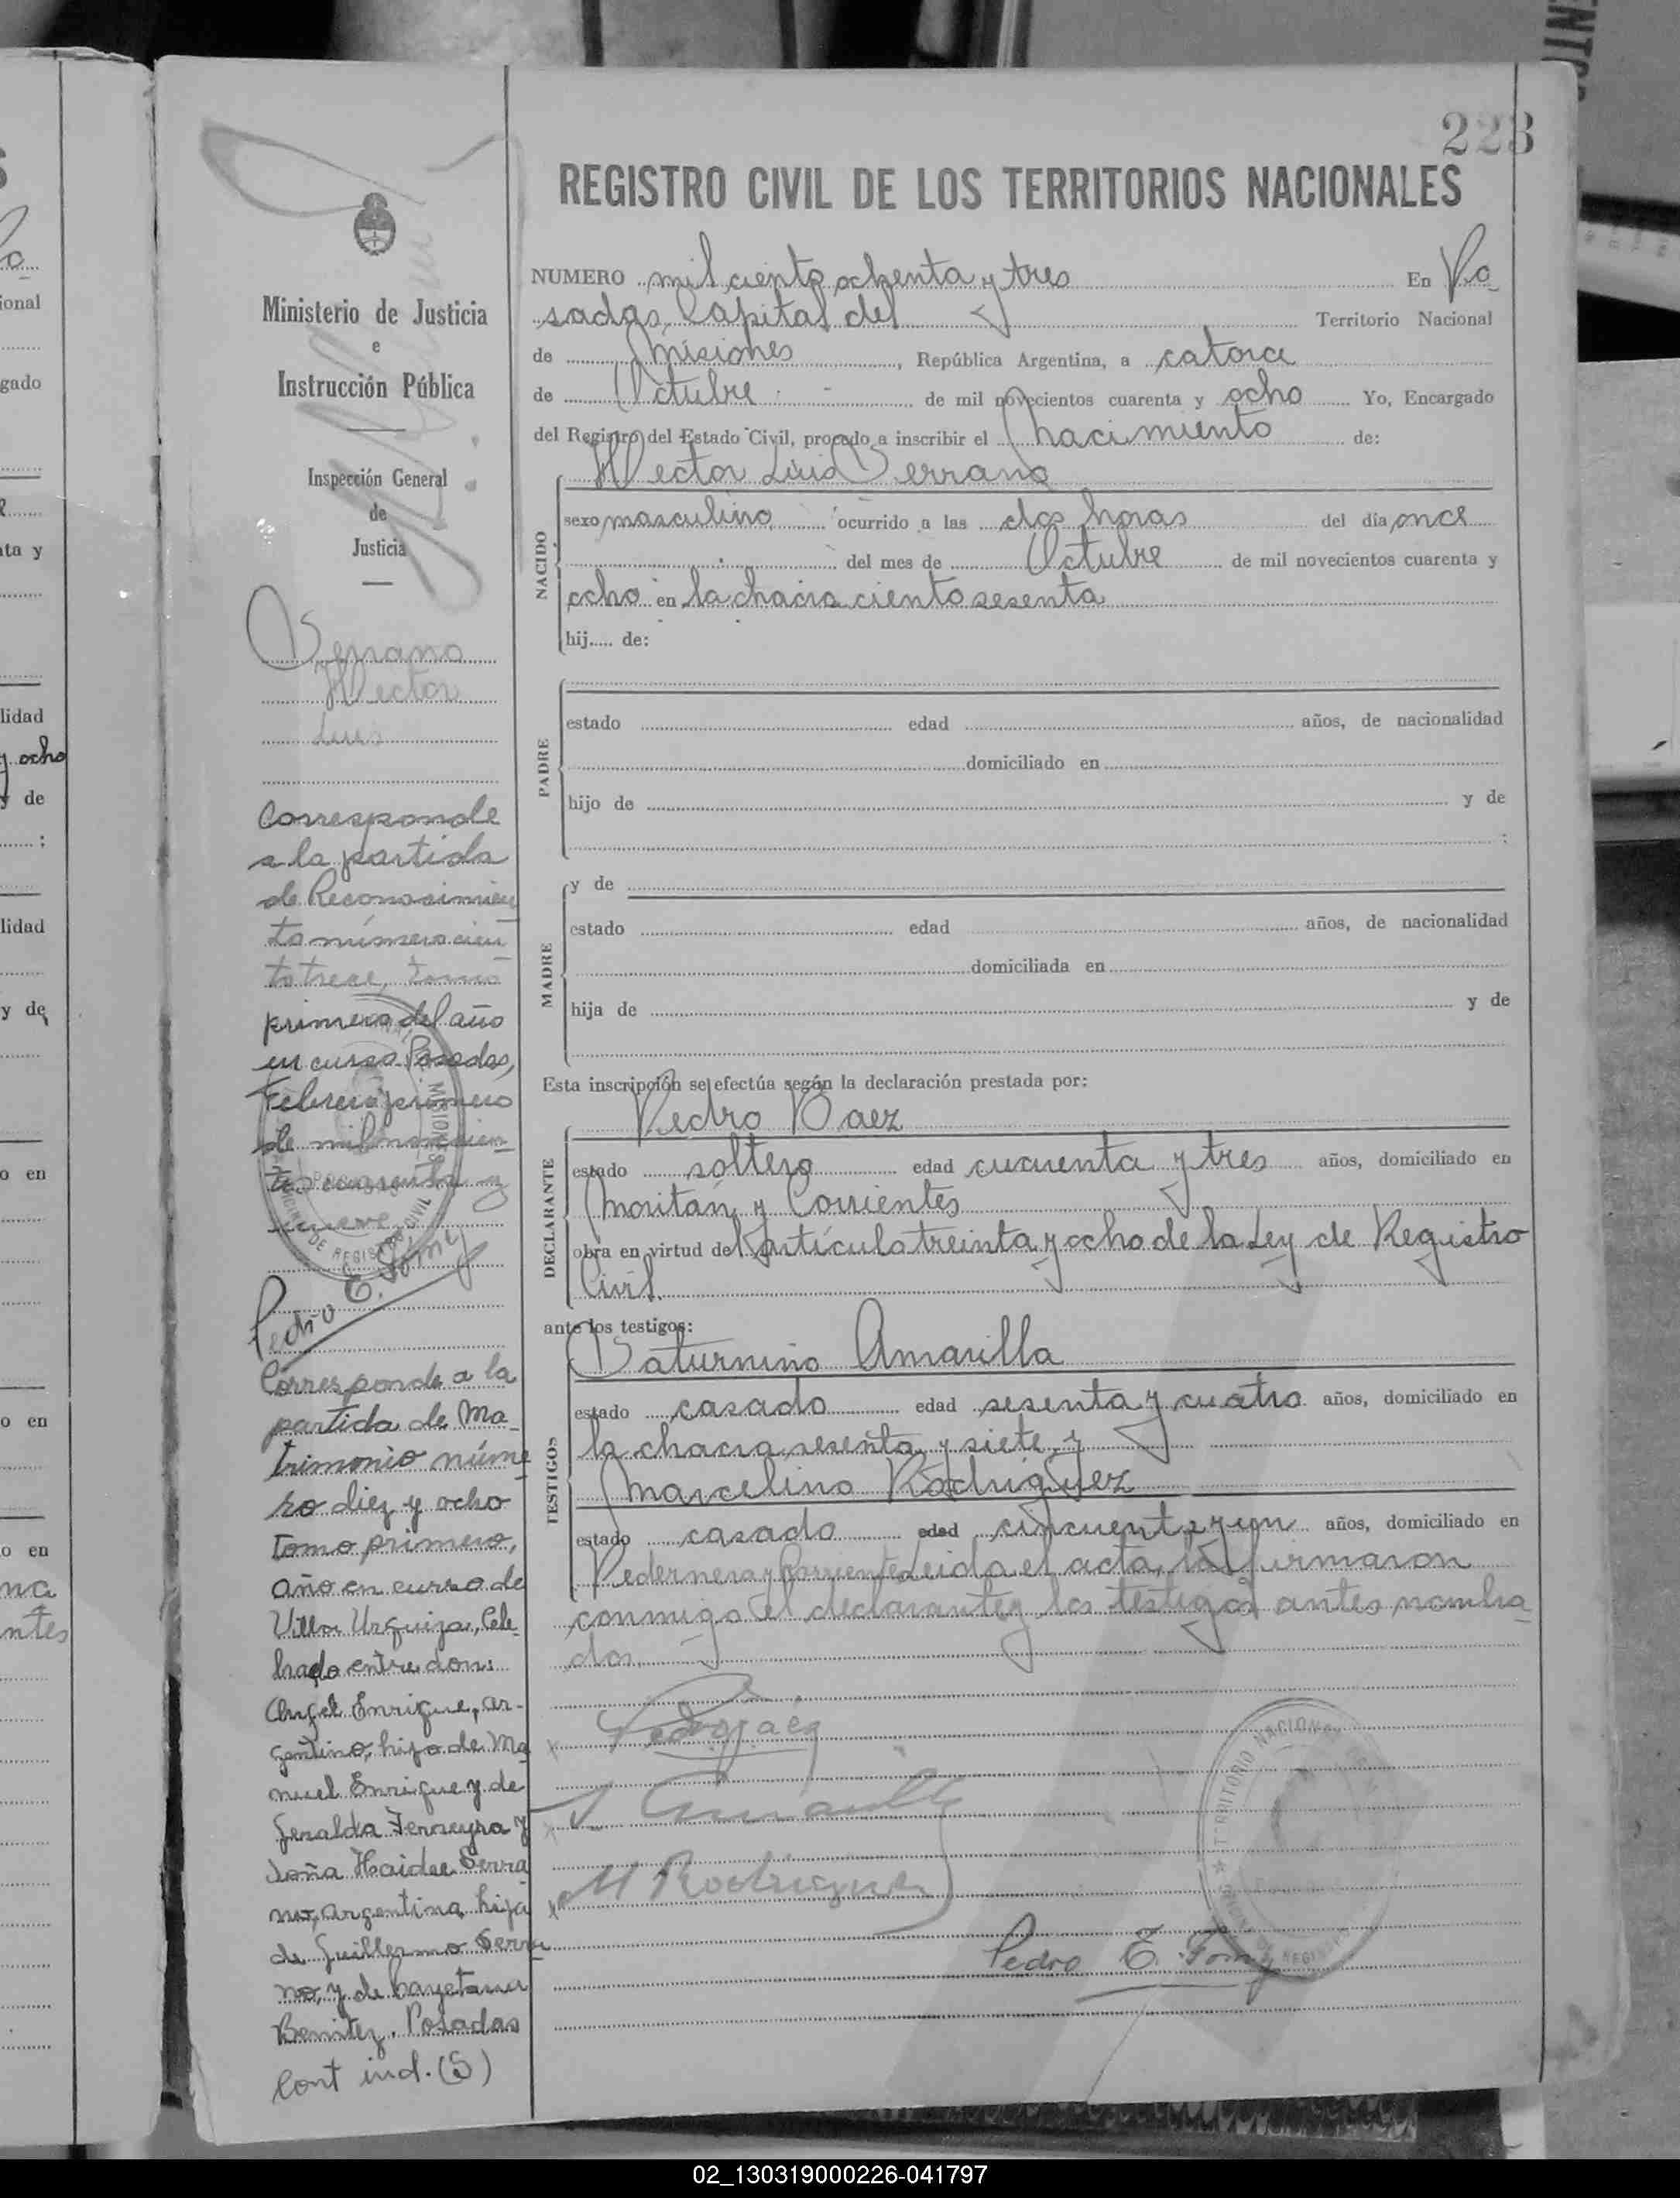 223
REGISTRO CIVIL DE LOS TERRITORIOS NACIONALES
NUMERO mil ciento ochenta y tres En Po
sadas, Capital del Territorio Nacional
de Misiones, República Argentina, a catorce
de Octubre de mil novecientos cuarenta y ocho Yo, Encargado
del Registro del Estado Civil, procedo a inscribir el Nacimiento de:
Hector Luis Serrano
NACIDO
sexo masculino ocurrido a las dos horas del día once
del mes de Octubre de mil novecientos cuarenta y
ocho en la chacra ciento sesenta
hij..... de:
PADRE
estado edad años, de nacionalidad
domiciliado en
hijo de y de
:
MADRE
y de
estado edad años, de nacionalidad
domiciliada en
hija de y de
Esta inscripción se efectúa según la declaración prestada por:
Pedro Baez
DECLARANTE
estado soltero edad cuarenta y tres años, domiciliado en
Moritán y Corrientes
obra en virtud del Artículo treinta y ocho de la Ley de Registro
Civil.
ante los testigos:
Saturnino Amarilla
TESTIGOS
estado casado edad sesenta y cuatro años, domiciliado en
la chacra sesenta y siete y
Marcelino Rodriguez
estado casado edad cincuenta y un años, domiciliado en
Pedernera y Corrientes Leida el acta, la firmaron
conmigo el declarante y los testigos antes nombra
dos.
Pedro Baez
S Amarilla
M Rodriguez
Pedro E. Gomez
TERRITORIO NACIONAL
Ministerio de Justicia
e
Instrucción Pública
Inspección General
de
Justicia
Serrano
Hector
Luis
Corresponde
a la partida
de Reconocimien
to número cien
to trece, tomo
primero del año
en curso. Posadas,
Febrero primero
de mil novecien-
tos cuarenta y
nueve
Pedro E. Gomez
Corresponde a la
partida de Ma-
trimonio núme
ro diez y ocho
tomo primero,
año en curso de
Villa Urquiza, Cele-
brado entre don:
Angel Enrique, ar-
gentino, hijo de Ma
nuel Enrique y de
Geralda Ferreyra y
doña Haidee Serra
no, argentina, hija
de Guillermo Serra
no, y de Cayetana
Benitez. Posadas
Cont ind. (S)
02_130319000226-041797